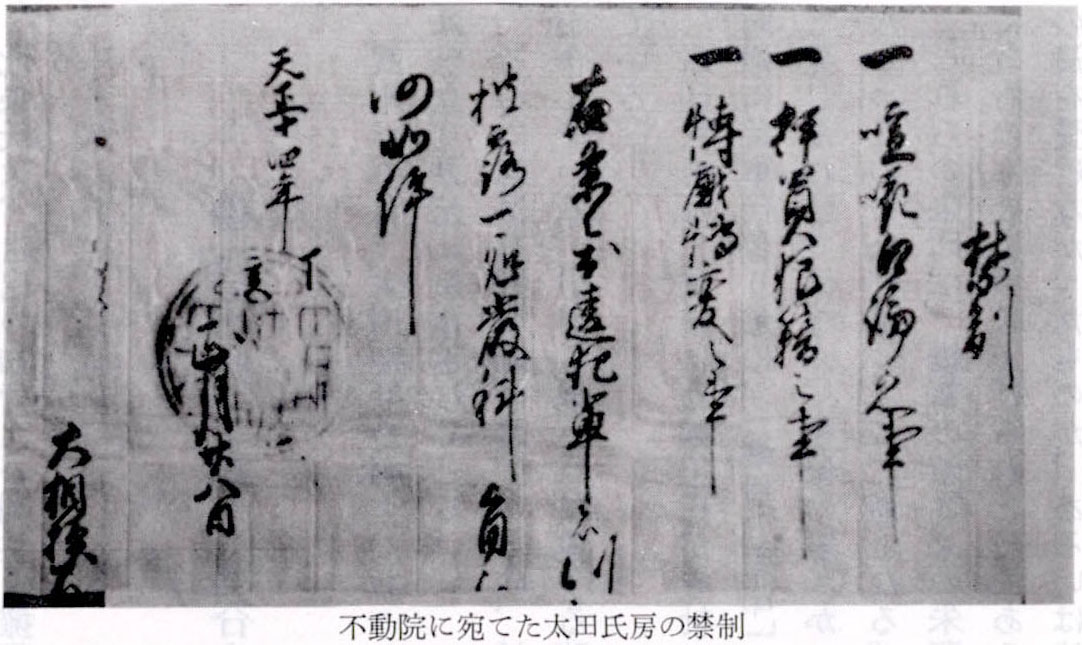 禁制
一 喧嘩口論之事
一 押買狼籍之事
一 博戯博変之事
右条々於違犯輩者則
披露可処厳科
仍如件
天正十四年
丁亥
正月廿八日
大相模
不動院に宛てた太田氏房の禁制